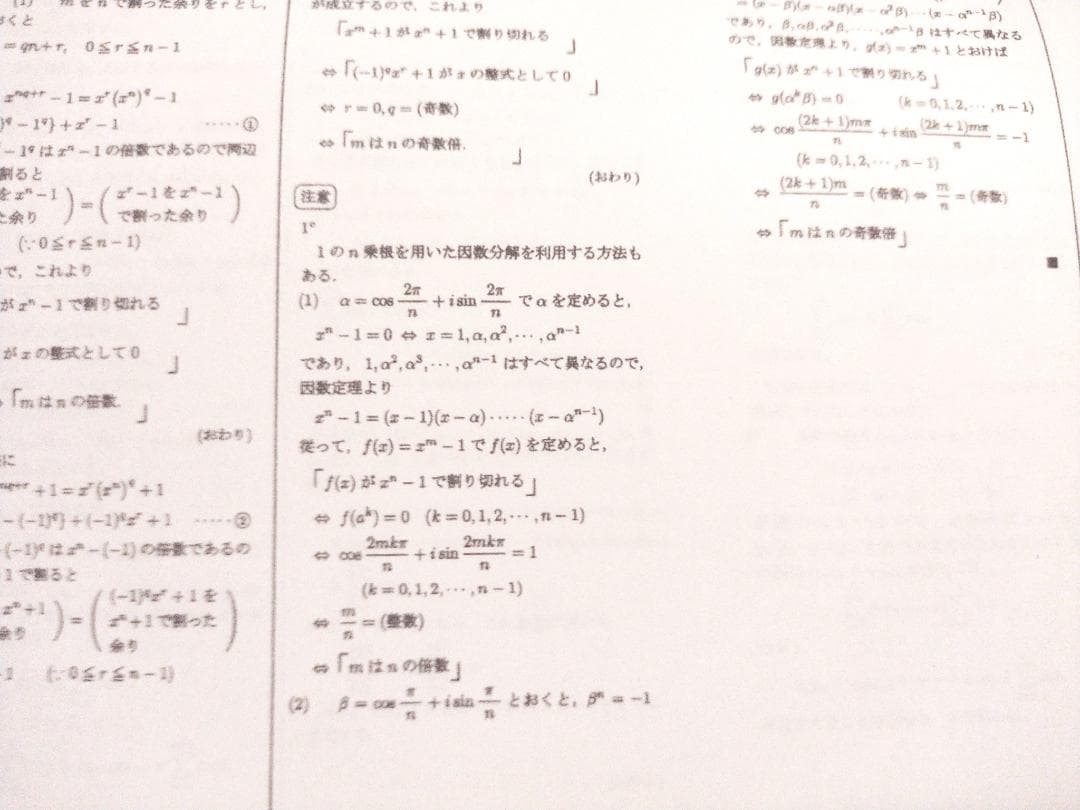 (1) m を n で割った余りを r とし,
おくと
= qn+r, 0≦r≦n-1
x^{nq+r} - 1 = x^r(x^n)^q - 1
)^q - 1^q} + x^r - 1 ·····①
- 1^q は x^n - 1 の倍数であるので両辺
割ると
を x^n - 1 ) = ( x^r - 1 を x^n - 1
た余り で割った余り )
(∵ 0≦r≦n-1)
で, これより
が x^n - 1 で割り切れる
」
が x の整式として 0
」
「m は n の倍数.
」
(おわり)
に
+ 1 = x^r(x^n)^q + 1
- (-1)^q} + (-1)^q x^r + 1 ·····②
- (-1)^q は x^n - (-1) の倍数であるの
1 で割ると
x^n + 1 ) = ( (-1)^q x^r + 1 を
x^n + 1 で割った
余り 余り )
-1 (∵ 0≦r≦n-1)
が成立するので, これより
「x^m + 1 が x^n + 1 で割り切れる
」
⇔「(-1)^q x^r + 1 が x の整式として 0
」
⇔ r = 0, q = (奇数)
⇔「m は n の奇数倍.
」
(おわり)
注意
1°
1 の n 乗根を用いた因数分解を利用する方法も
ある.
(1) α = cos 2π/n + i sin 2π/n で α を定めると,
x^n - 1 = 0 ⇔ x = 1, α, α^2, ···, α^{n-1}
であり, 1, α^2, α^3, ···, α^{n-1} はすべて異なるので,
因数定理より
x^n - 1 = (x-1)(x-α)·····(x-α^{n-1})
従って, f(x) = x^m - 1 で f(x) を定めると,
「f(x) が x^n - 1 で割り切れる」
⇔ f(a^k) = 0 (k = 0, 1, 2, ···, n-1)
⇔ cos 2mkπ/n + i sin 2mkπ/n = 1
(k = 0, 1, 2, ···, n-1)
⇔ m/n = (整数)
⇔「m は n の倍数」
(2) β = cos π/n + i sin π/n とおくと, β^n = -1
= (x-β)(x-αβ)(x-α^2β)···(x-α^{n-1}β)
であり, β, αβ, α^2β, ·····, α^{n-1}β はすべて異なる
ので, 因数定理より, g(x) = x^m + 1 とおけば
「g(x) が x^n + 1 で割り切れる」
⇔ g(α^kβ) = 0 (k = 0, 1, 2, ···, n-1)
⇔ cos (2k+1)mπ/n + i sin (2k+1)mπ/n = -1
(k = 0, 1, 2, ···, n-1)
⇔ (2k+1)m/n = (奇数) ⇔ m/n = (奇数)
⇔「m は n の奇数倍」
■